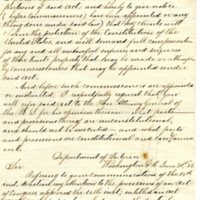 portions of said act. and lastly to give notice
before commissioners have been appointed or any
under said law that they should
claim the protection of the Constitution of the
United States, and will demand full compensation
for any and all unlawful injuries and seizures
of their property that may be made or attempted
by commissioners that may be appointed under
said act.
And before such commissioners are appointed
or instructed I respectfully request that you
will refer said act to the Hon. Attorney General
of the U.S. for his opinion thereon
and provisions thereof are unconstitutional
and should not be executed and what parts
and provisions are constitutional and can
Department of Interior
Washington June
Sir
Referring to your communication of the
directing my attention to the provisions of an act
of Congress approved the